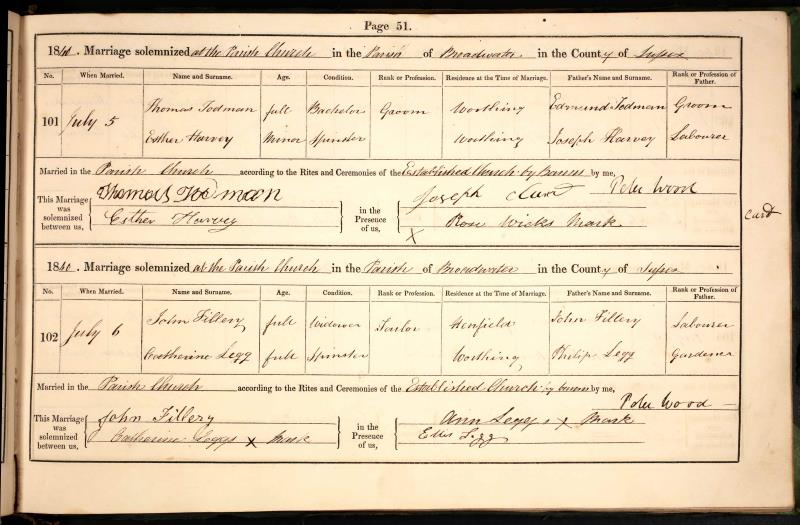 Page 51.
1840. Marriage solemnized at the Parish Church in the Parish of Broadwater in the County of Sussex
No. When Married. Name and Surname. Age. Condition. Rank or Profession. Residence at the Time of Marriage. Father's Name and Surname. Rank or Profession of Father.
101 July 5 Thomas Todman full Bachelor Groom Worthing Edmund Todman Groom
Esther Harvey Minor Spinster Worthing Joseph Harvey Labourer
Married in the Parish Church according to the Rites and Ceremonies of the Established Church by Banns by me,
Peter Wood
This Marriage was solemnized between us, Thomas Todman
Esther Harvey
in the Presence of us, Joseph
X Rose Wicks Mark
Card
1840. Marriage solemnized at the Parish Church in the Parish of Broadwater in the County of Sussex
No. When Married. Name and Surname. Age. Condition. Rank or Profession. Residence at the Time of Marriage. Father's Name and Surname. Rank or Profession of Father.
102 July 6 John Fillery full Widower Taylor Henfield John Fillery Labourer
Catharine Legg full Spinster Worthing Philip Legg Gardener
Married in the Parish Church according to the Rites and Ceremonies of the Established Church by banns by me,
Peter Wood
This Marriage was solemnized between us, John Fillery
Catharine Leggs X Mark
in the Presence of us, Ann Leggs X Mark
Legg